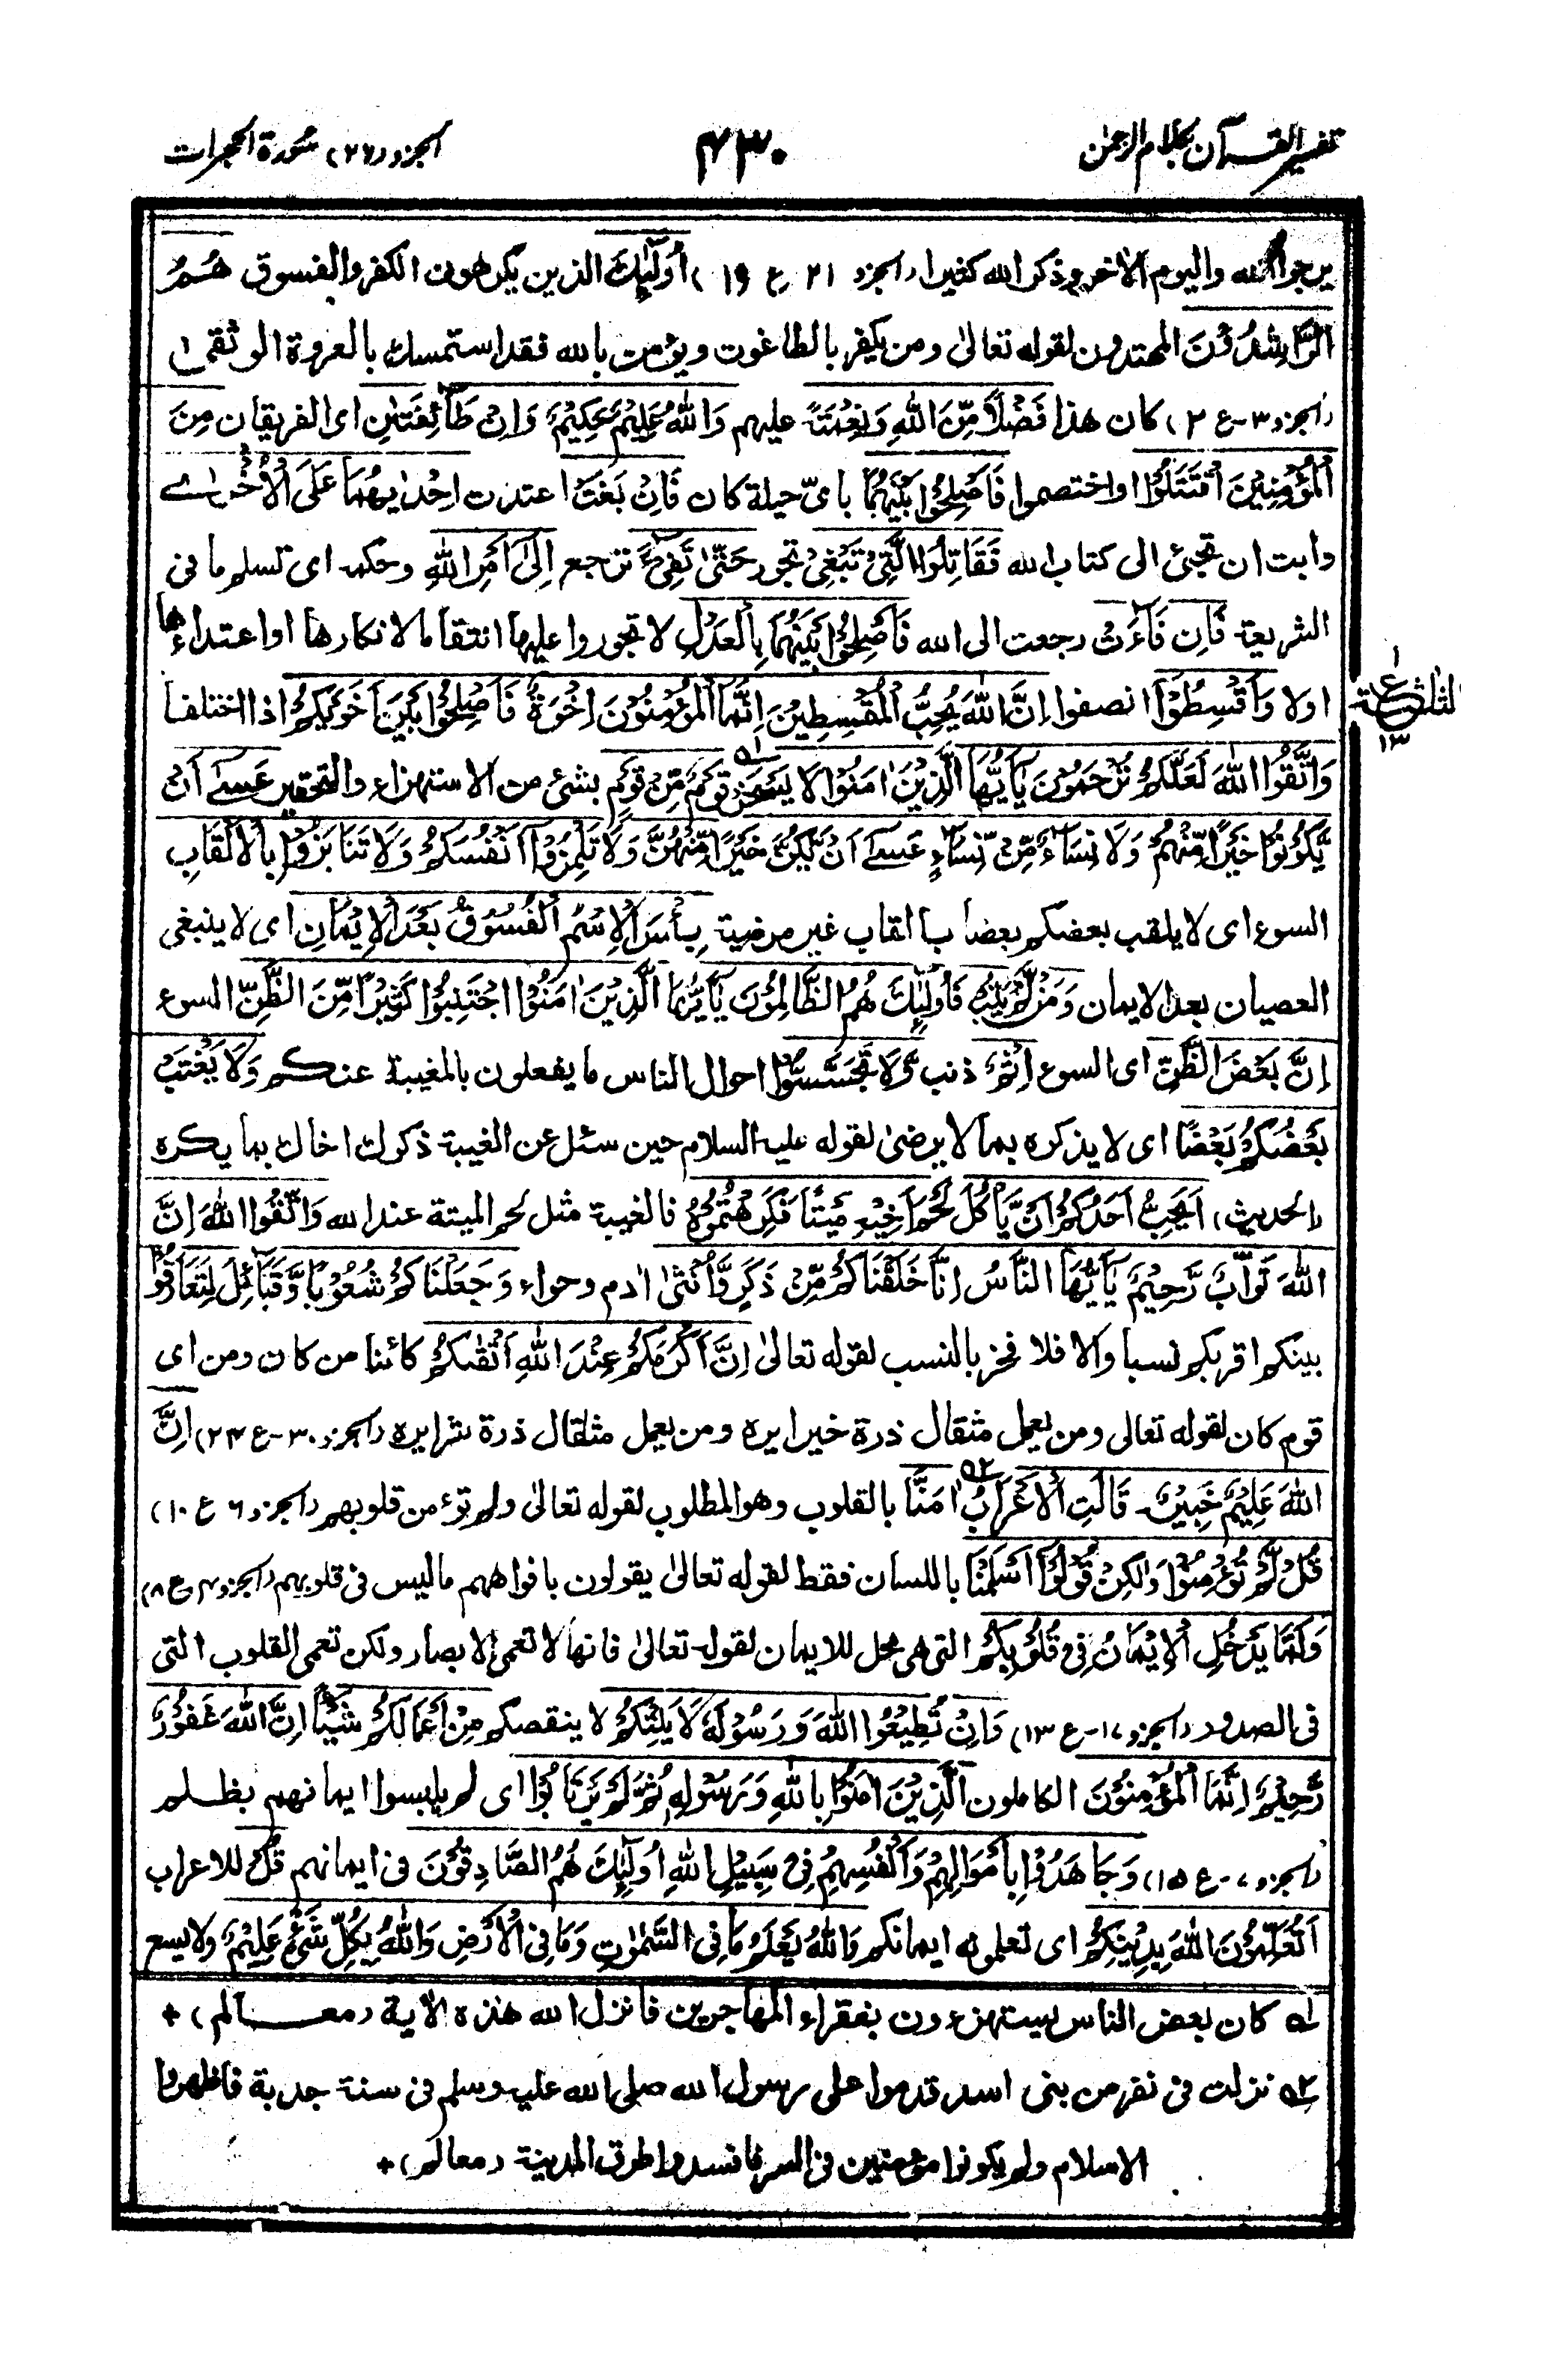 تفسير القرآن بكلام الرحمن
۴۳۰
الجزو (۲۶) سُورة الحجرات
يرجوا الله واليوم الاخر وذكر الله كثيرا (الجزو ۲۱ ع ۱۹) اُولٰٓئِكَ الذين يكرهون الكفر والفسوق هُمُ
الرّٰشِدُوْنَ المهتدون لقوله تعالىٰ ومن يكفر بالطاغوت ويؤمن بالله فقد استمسك بالعروة الوثقىٰ
(الجزو ۳-ع ۲) كان هذا فَضْلًا مِّنَ اللهِ وَنِعْمَةً عليهم وَاللهُ عَلِيْمٌ حَكِيْمٌ وَاِنْ طَآئِفَتٰنِ اى الفريقان مِنَ
الْمُؤْمِنِيْنَ اقْتَتَلُوْا او اختصموا فَاَصْلِحُوْا بَيْنَهُمَا باىّ حيلة كان فَاِنْ بَغَتْ اعتدت اِحْدٰىهُمَا عَلَى الْاُخْرٰى
وابت ان تجئ الى كتاب الله فَقَاتِلُوا الَّتِىْ تَبْغِىْ تجور حَتّٰى تَفِىْٓءَ ترجع اِلٰٓى اَمْرِ اللهِ وحكمه اى تسلم ما فى
الشريعة فَاِنْ فَآءَتْ رجعت الى الله فَاَصْلِحُوْا بَيْنَهُمَا بِالْعَدْلِ لا تجوروا عليها انتقاما لانكارها او اعتداءها
اولا وَاَقْسِطُوْا انصفوا اِنَّ اللهَ يُحِبُّ الْمُقْسِطِيْنَ اِنَّمَا الْمُؤْمِنُوْنَ اِخْوَةٌ فَاَصْلِحُوْا بَيْنَ اَخَوَيْكُمْ اذا اختلفا
الثلثة
ع
۱
۱۳
وَاتَّقُوا اللهَ لَعَلَّكُمْ تُرْحَمُوْنَ يٰٓاَيُّهَا الَّذِيْنَ اٰمَنُوْا لَا يَسْخَرْ ۱ه قَوْمٌ مِّنْ قَوْمٍ بشئ من الاستهزاء والتحقير عَسٰٓى اَنْ
يَّكُوْنُوْا خَيْرًا مِّنْهُمْ وَلَا نِسَآءٌ مِّنْ نِّسَآءٍ عَسٰٓى اَنْ يَّكُنَّ خَيْرًا مِّنْهُنَّ وَلَا تَلْمِزُوْٓا اَنْفُسَكُمْ وَلَا تَنَابَزُوْا بِالْاَلْقَابِ
السوء اى لا يلقب بعضكم بعضا بالقاب غير مرضية بِئْسَ الْاِسْمُ الْفُسُوْقُ بَعْدَ الْاِيْمَانِ اى لا ينبغى
العصيان بعد الايمان وَمَنْ لَّمْ يَتُبْ فَاُولٰٓئِكَ هُمُ الظَّالِمُوْنَ يٰٓاَيُّهَا الَّذِيْنَ اٰمَنُوْا اجْتَنِبُوْا كَثِيْرًا مِّنَ الظَّنِّ السوء
اِنَّ بَعْضَ الظَّنِّ اى السوء اِثْمٌ ذنب وَّلَا تَجَسَّسُوْا احوال الناس ما يفعلون بالمغيبة عنكم وَلَا يَغْتَبْ
بَعْضُكُمْ بَعْضًا اى لا يذكره بما لا يرضىٰ لقوله عليه السلام حين سئل عن الغيبة ذكرك اخاك بما يكره
(الحديث) اَيُحِبُّ اَحَدُكُمْ اَنْ يَّاْكُلَ لَحْمَ اَخِيْهِ مَيْتًا فَكَرِهْتُمُوْهُ فالغيبة مثل لحم الميتة عند الله وَاتَّقُوا اللهَ اِنَّ
اللهَ تَوَّابٌ رَّحِيْمٌ يٰٓاَيُّهَا النَّاسُ اِنَّا خَلَقْنَاكُمْ مِّنْ ذَكَرٍ وَّاُنْثٰى اٰدم وحواء وَجَعَلْنَاكُمْ شُعُوْبًا وَّقَبَآئِلَ لِتَعَارَفُوْا
بينكم اقربكم نسبا والا فلا فخر بالنسب لقوله تعالىٰ اِنَّ اَكْرَمَكُمْ عِنْدَ اللهِ اَتْقٰىكُمْ كائنا من كان ومن اى
قوم كان لقوله تعالى ومن يعمل مثقال ذرة خيرا يره ومن يعمل مثقال ذرة شرا يره (الجزو ۳۰-ع ۲۴) اِنَّ
اللهَ عَلِيْمٌ خَبِيْرٌ۔ قَالَتِ الْاَعْرَابُ ۲ه اٰمَنَّا بالقلوب وهو المطلوب لقوله تعالىٰ ولم تؤمن قلوبهم (الجزو ۶ ع ۱۰)
قُلْ لَّمْ تُؤْمِنُوْا وَلٰكِنْ قُوْلُوْٓا اَسْلَمْنَا باللسان فقط لقوله تعالىٰ يقولون بافواههم ما ليس فى قلوبهم (الجزو ۴ ع ۸)
وَلَمَّا يَدْخُلِ الْاِيْمَانُ فِىْ قُلُوْبِكُمْ التى هى محل للايمان لقوله تعالىٰ فانها لا تعمى الابصار ولكن تعمى القلوب التى
فى الصدور (الجزو ۱۷-ع ۱۳) وَاِنْ تُطِيْعُوا اللهَ وَرَسُوْلَهٗ لَا يَلِتْكُمْ لا ينقصكم مِنْ اَعْمَالِكُمْ شَيْئًا اِنَّ اللهَ غَفُوْرٌ
رَّحِيْمٌ اِنَّمَا الْمُؤْمِنُوْنَ الكاملون الَّذِيْنَ اٰمَنُوْا بِاللهِ وَرَسُوْلِهٖ ثُمَّ لَمْ يَرْتَابُوْا اى لم يلبسوا ايمانهم بظلم
(الجزو ۷-ع ۱۵) وَجَاهَدُوْا بِاَمْوَالِهِمْ وَاَنْفُسِهِمْ فِىْ سَبِيْلِ اللهِ اُولٰٓئِكَ هُمُ الصَّادِقُوْنَ فى ايمانهم قُلْ للاعراب
اَتُعَلِّمُوْنَ اللهَ بِدِيْنِكُمْ اى تعلمونه ايمانكم وَاللهُ يَعْلَمُ مَا فِى السَّمٰوٰتِ وَمَا فِى الْاَرْضِ وَاللهُ بِكُلِّ شَىْءٍ عَلِيْمٌ ولا يسع
۱ه كان بعض الناس يستهزءون بفقراء المهاجرين فانزل الله هذه الاية (معالم) +
۲ه نزلت فى نفر من بنى اسد قدموا على رسول الله صلى الله عليه وسلم فى سنة جدبة فاظهروا
الاسلام ولم يكونوا مؤمنين فى السر فافسدوا طرق المدينة (معالم) +